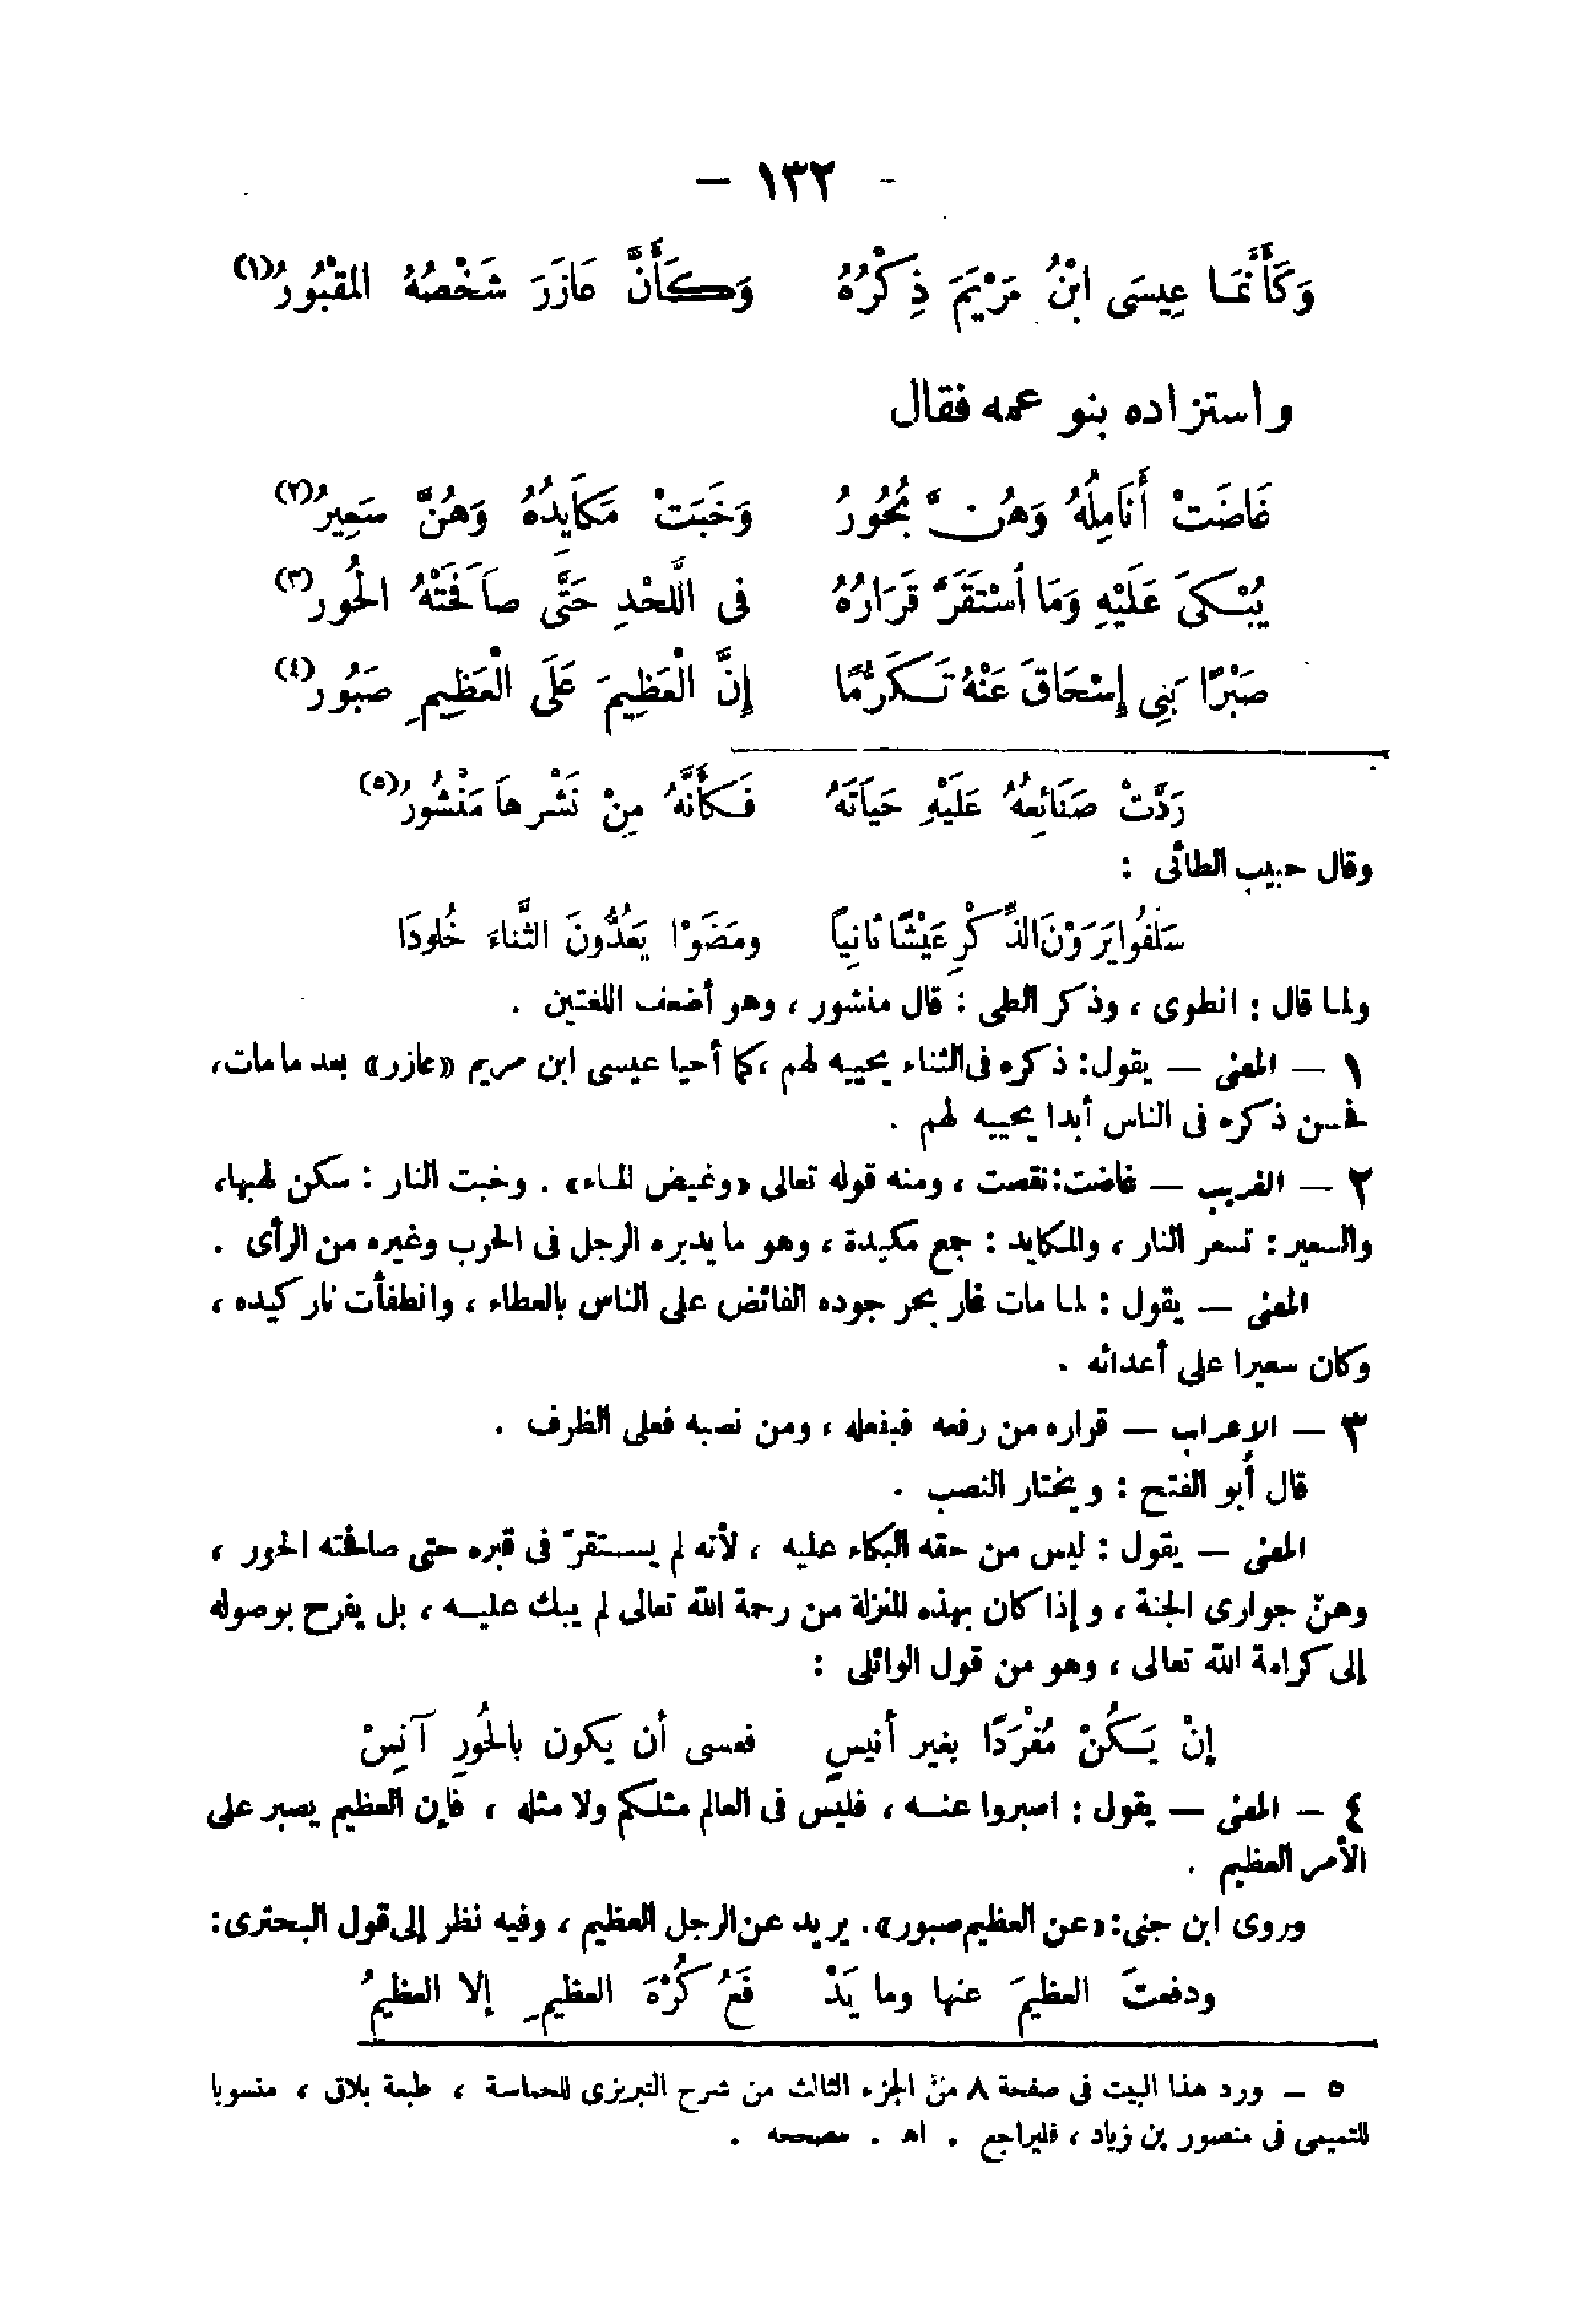 - ١٣٢ -
وَكَأَنَّمَا عِيسَى ابْنُ مَرْيَمَ ذِكْرُهُ وَكَأَنَّ عَازَرَ شَخْصُهُ المَقْبُورُ(١)
واستزاده بنو عمه فقال
غَاضَتْ أَنَامِلُهُ وَهُنَّ بُحُورُ وَخَبَتْ مَكَايِدُهُ وَهُنَّ سَعِيرُ(٢)
يُبْكَى عَلَيْهِ وَمَا اُسْتَقَرَّ قَرَارُهُ فى اللَّحْدِ حَتَّى صَافَحَتْهُ الحُورُ(٣)
صَبْرًا بَنِي إِسْحَاقَ عَنْهُ تَكَرُّمًا إِنَّ الْعَظِيمَ عَلَى الْعَظِيمِ صَبُورُ(٤)
رَدَّتْ صَنَائِعُهُ عَلَيْهِ حَيَاتَهُ فَكَأَنَّهُ مِنْ نَشْرِهاَ مَنْشُورُ(٥)
وقال حبيب الطائى :
سَلَفُوا يَرَوْنَ الذِّكْرِ عَيْشًا ثانِياً ومَضَوْا يَعُدُّونَ الثَّناءَ خُلودَا
ولما قال : انطوى ، وذكر الطى : قال منشور ، وهو أضعف اللغتين .
١ — المعنى — يقول: ذكره فى الثناء يحييه لهم ، كما أحيا عيسى ابن مريم «عازر» بعد ما مات،
فحسن ذكره فى الناس أبدا يحييه لهم .
٢ — الغريب — غاضت: نقصت ، ومنه قوله تعالى «وغيض الماء» . وخبت النار : سكن لهبها،
والسعير : تسعر النار ، والمكايد : جمع مكيدة ، وهو ما يدبره الرجل فى الحرب وغيره من الرأى .
المعنى — يقول : لما مات غار بحر جوده الفائض على الناس بالعطاء ، وانطفأت نار كيده ،
وكان سعيرا على أعدائه .
٣ — الإعراب — قراره من رفعه فبفعله ، ومن نصبه فعلى الظرف .
قال أبو الفتح : ويختار النصب .
المعنى — يقول : ليس من حقه البكاء عليه ، لأنه لم يستقرّ فى قبره حتى صافحته الحور ،
وهنّ جوارى الجنة ، وإذا كان بهذه المنزلة من رحمة الله تعالى لم يبك عليه ، بل يفرح بوصوله
إلى كرامة الله تعالى ، وهو من قول الوائلى :
إنْ يَكُنْ مُفْرَدًا بغير أنيسٍ فعسى أن يكون بالحُورِ آنِسْ
٤ — المعنى — يقول : اصبروا عنه ، فليس فى العالم مثلكم ولا مثله ، فإن العظيم يصبر على
الأمر العظيم .
وروى ابن جنى: «عن العظيم صبور». يريد عن الرجل العظيم ، وفيه نظر إلى قول البحترى:
ودفعتَ العظيمَ عنها وما يَدْ فَعُ كُرْهَ العظيمِ إلا العظيمُ
٥ — ورد هذا البيت فى صفحة ٨ من الجزء الثالث من شرح التبريزى للحماسة ، طبعة بلاق ، منسوبا
للتميمى فى منصور بن زياد ، فليراجع . اهـ . مصححه .